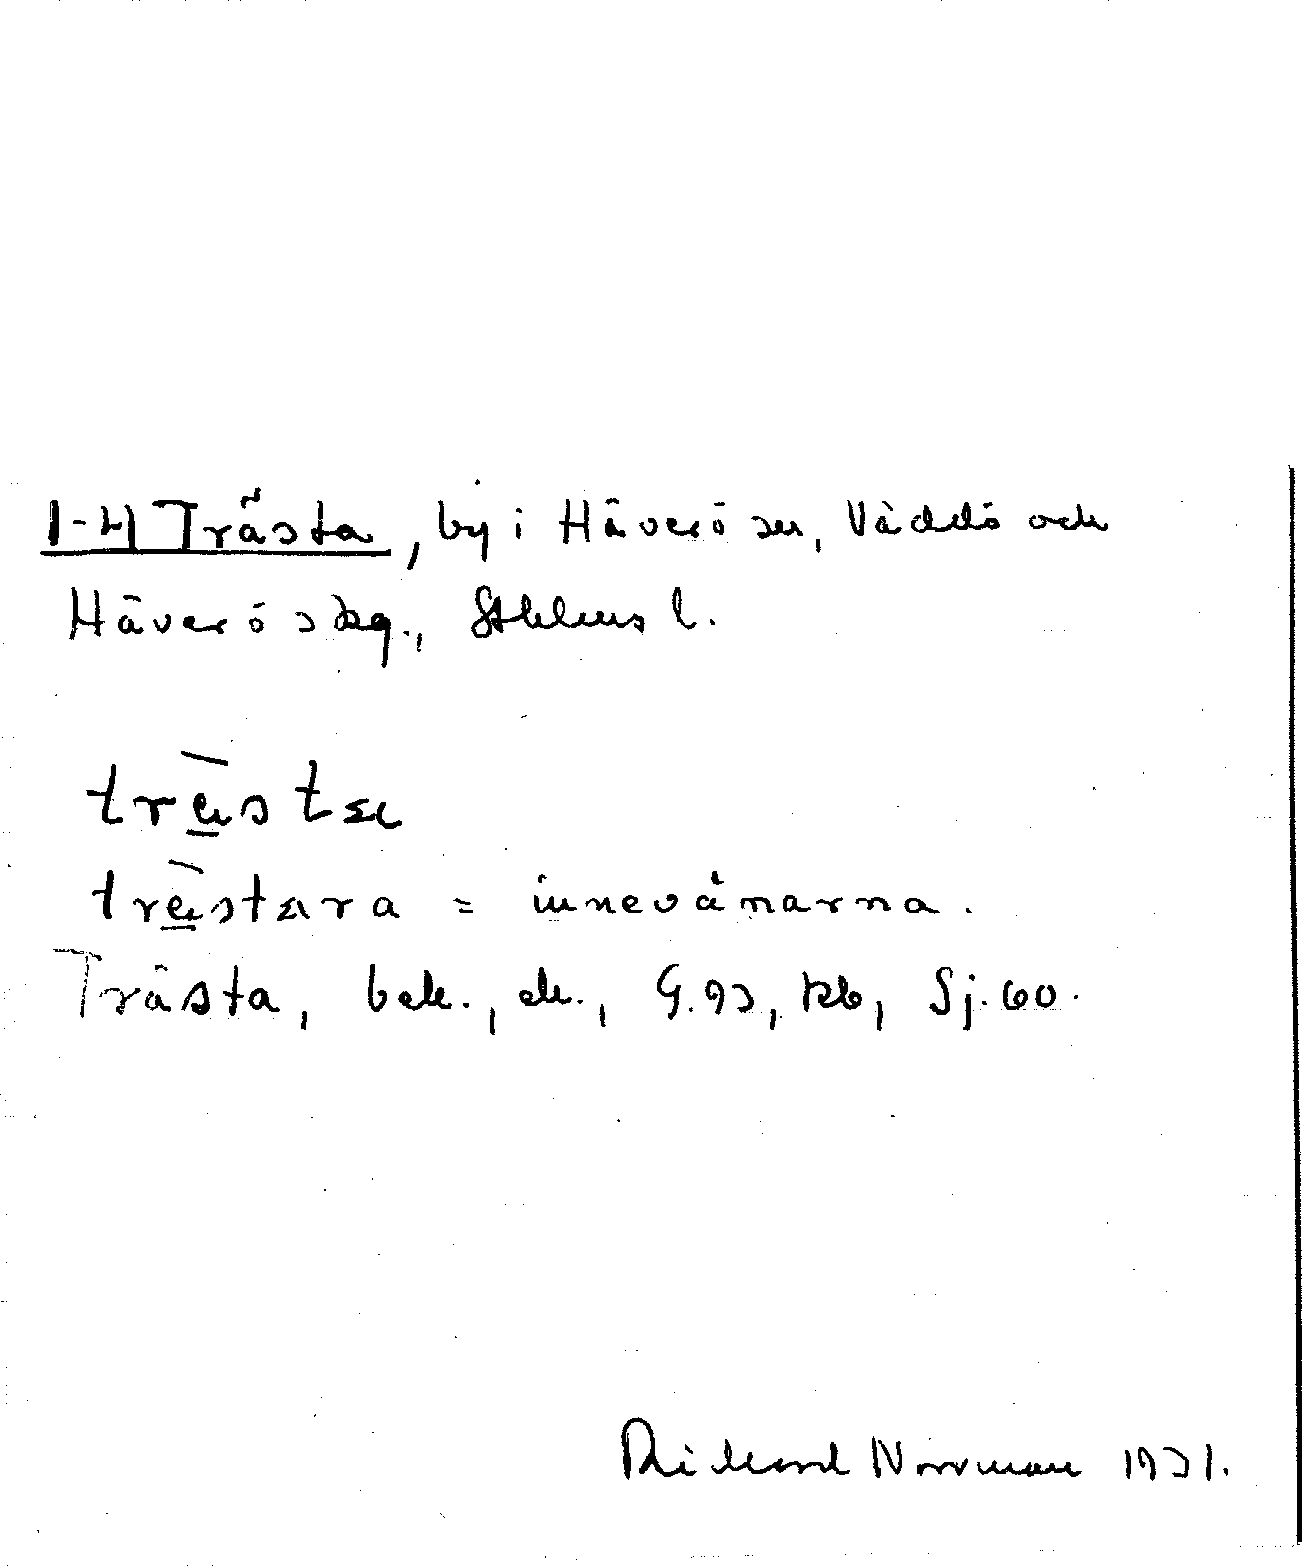 1-4 Trästa, by i Häverö sn, Väddö och
Häverö skg., Sthlms l.
trästa
trästara = innevånarna.
Trästa, bek., ek., G. 93, kb, Sj. 60.
Rickard Norrman 1931.